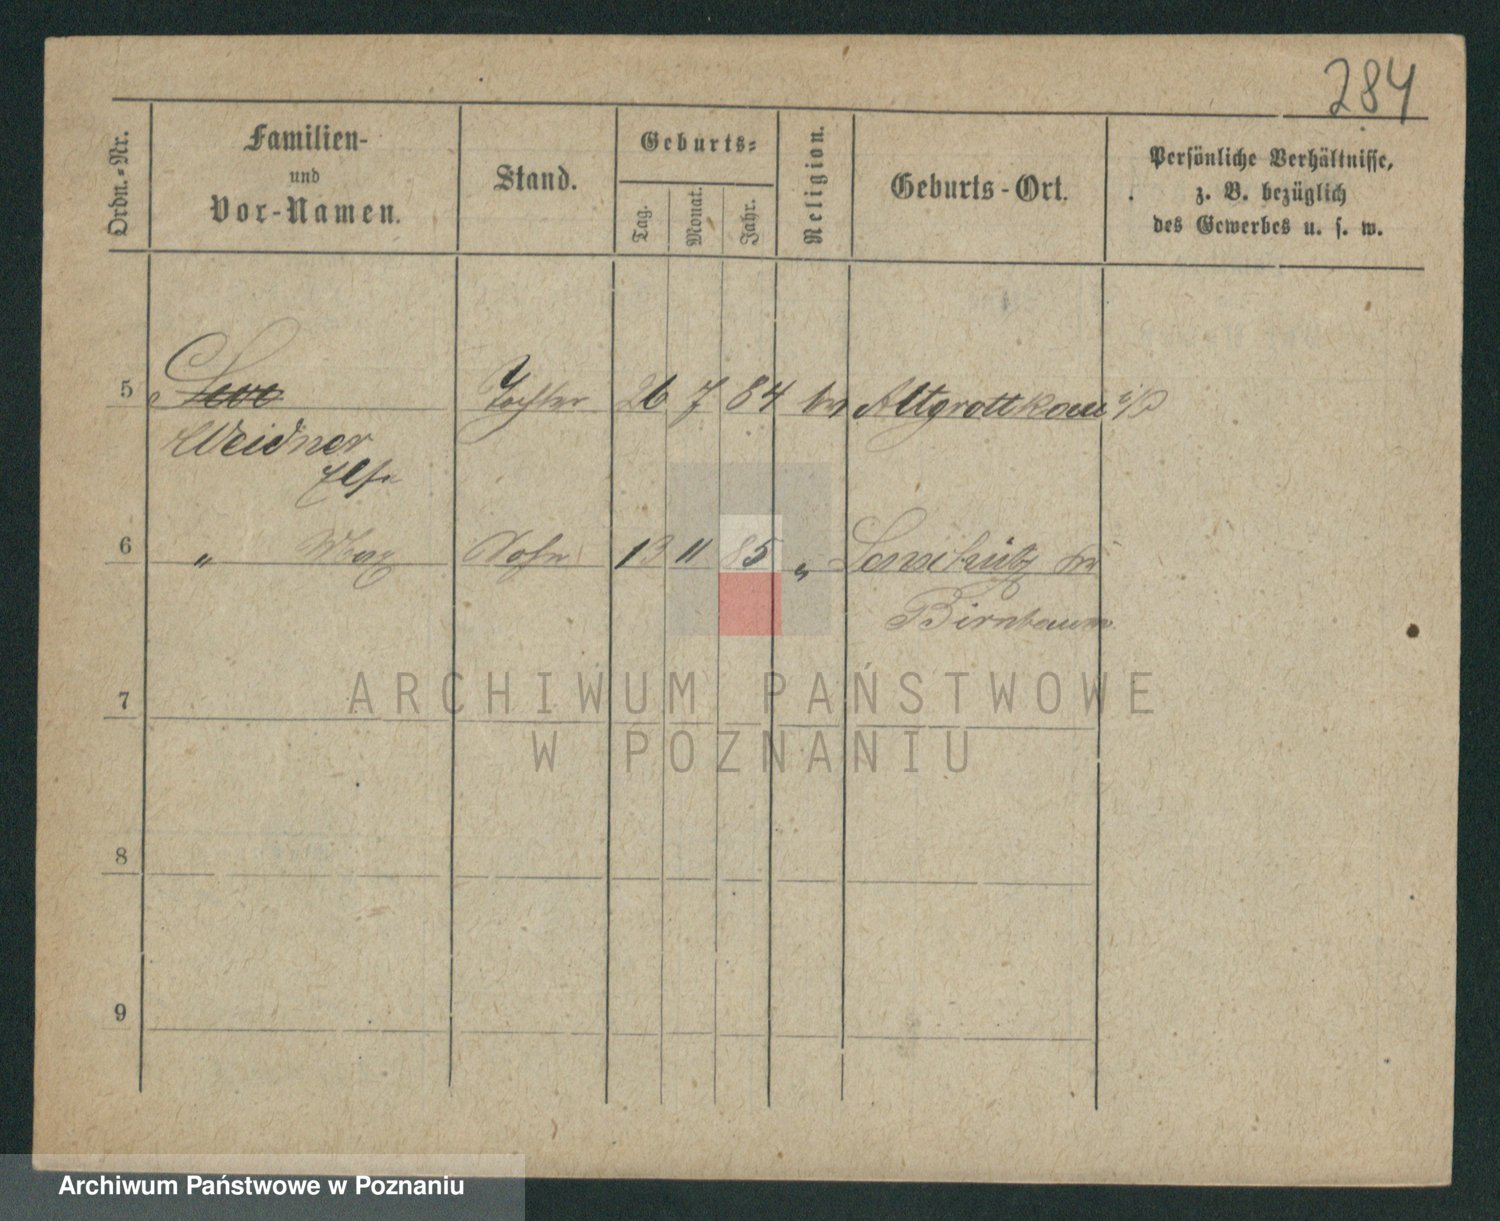 284
Ordn.-Nr.
Familien-
und
Vor-Namen.
Stand.
Geburts-
Tag.
Monat.
Jahr.
Religion.
Geburts-Ort.
Persönliche Verhältnisse,
z. B. bezüglich
des Gewerbes u. s. w.
5 Tochter 26 7 84 Altgrottkau
Weidner
Else
6 " Max Sohn 13 11 85 "
Birnbaum
7
8
9
ARCHIWUM PAŃSTWOWE
W POZNANIU
Archiwum Państwowe w Poznaniu